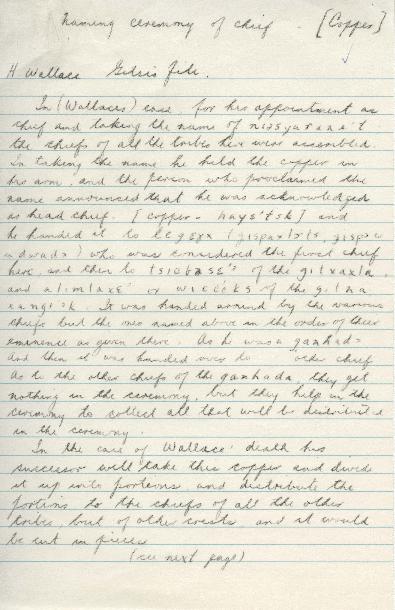 Naming ceremony of chief - [Copper]
H Wallace
In (Wallace's) case, for his appointment as
chief and taking the name of
the chiefs of all the tribes here were assembled.
In taking the name he held the copper in
his arm, and the person who proclaimed the
name announced that he was acknowledged
as head chief. [copper - hays'Etsk] and
he handed it to legeex (gispaxlo'ts,
) who was considered the first chief
here, and then to of the gitxaxla,
and or of the
It was handed around by the various
chiefs but the one named above in the order of their
eminence as given there. As he was a ganhada
And then it was handed over to older chief
As to the other chiefs of the ganhada, they get
nothing in the ceremony, but they help in the
ceremony to collect all that will be distributed
in the ceremony.
In the case of Wallace' death his
successor will take this copper and divide
it up into portions, and distribute the
portions to the chiefs of all the other
tribes, but of other crests, and it would
be cut in pieces
(see next page)